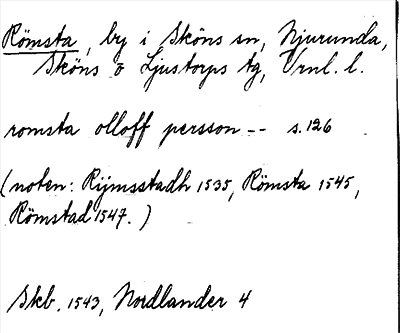 Römsta, by i Sköns sn, Njurunda,
Sköns o Ljustorps tg, Vrnl. l.
romsta olloff persson -- s. 126
(noten: Rijmsstadh 1535, Römsta 1545,
Römstad 1547.)
Skb. 1543, Nordlander 4